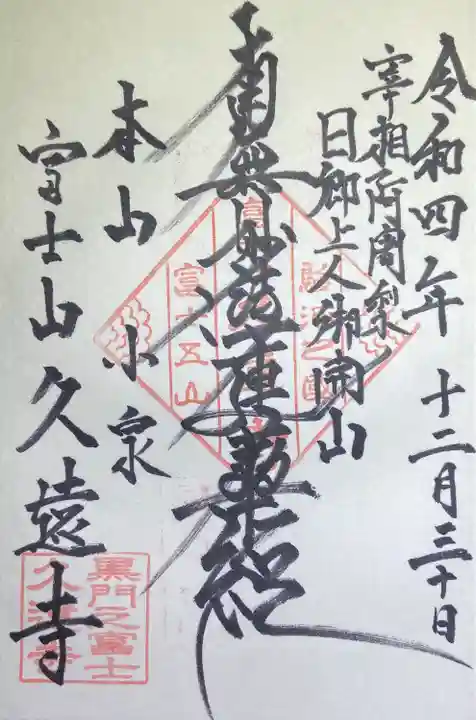 令和四年 十二月三十日
宰相阿闍梨
日郷上人御開山
南無妙法蓮華経
本山 小泉
富士山久遠寺
駿河之國
富士五山
黒門之富士
久遠寺